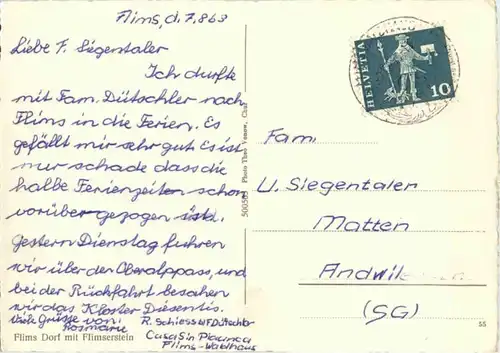 Flims, d. 7.8.63
Liebe F. Siegentaler
Ich durfte
mit Fam. Dütschler nach
Flims in die Ferien. Es
gefällt mir sehr gut. Es ist
nur schade dass die
halbe Ferienzeiten schon
vorüber gezogen ist.
Gestern Dienstag fuhren
wir über den Oberalppass, und
bei der Rückfahrt besahen
wir das Kloster Disentis.
Viele Grüsse von:
Rosmarie
R. Schiess
Dütschler
Casa Sin Plaunca
Flims-Waldhaus
Flims Dorf mit Flimserstein
500505 Photo Theo Vonow, Chur
HELVETIA
10
Fam.
U. Siegentaler
Matten
Andwil
(SG)
55